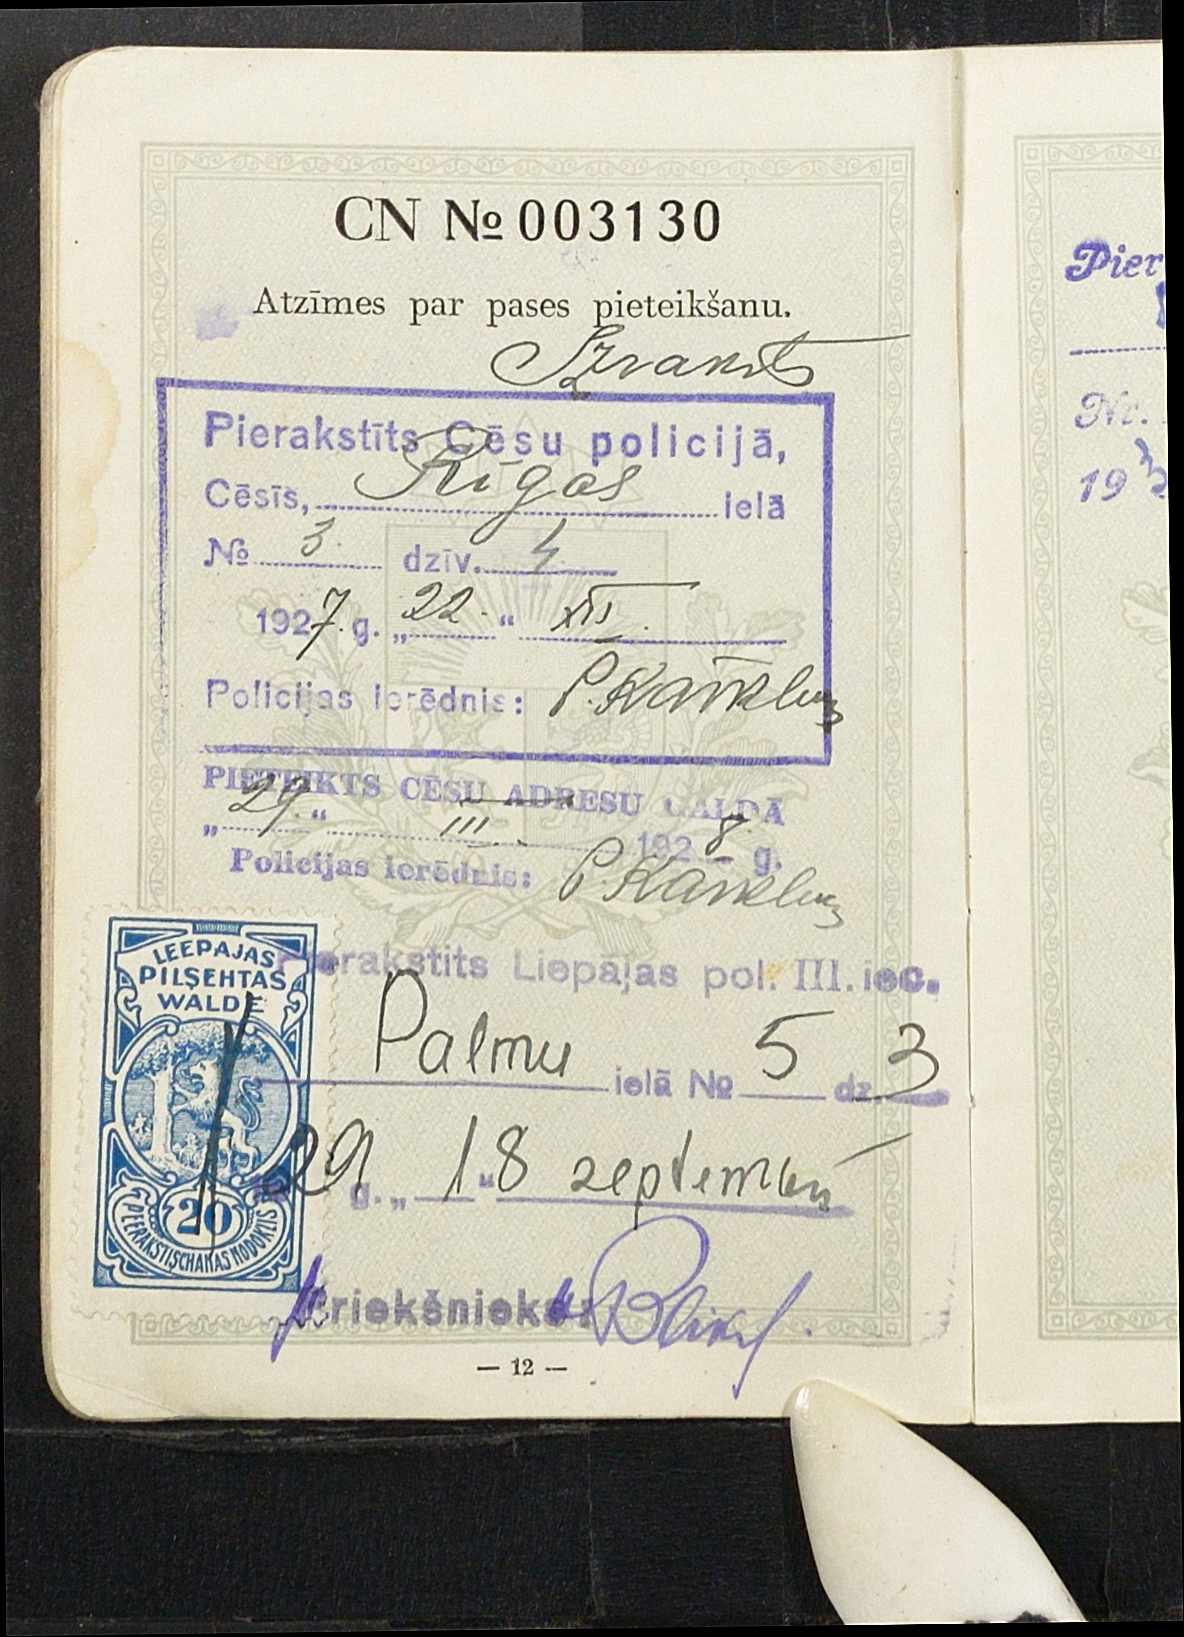 CN № 003130
Atzīmes par pases pieteikšanu.
Izraksts
Pierakstīts Cēsu policijā,
Cēsīs, Rīgas ielā
№ 3. dzīv. 4
1927. g. „22.“ XII.
Policijas ierēdnis: P. Kārkliņ
PIETEIKTS CĒSU ADRESU GALDĀ
„29.“ III. 1928 g.
Policijas ierēdnis: P. Kārkliņ
LEEPAJAS
PILSEHTAS
WALDE
20
PIERAKSTISCHANAS NODOKLIS
Pierakstīts Liepājas pol. III. iec.
Palmu ielā № 5 dz. 3
29 g. „18“ septembrī
Priekšnieks:
— 12 —
Pier
Nr.
193